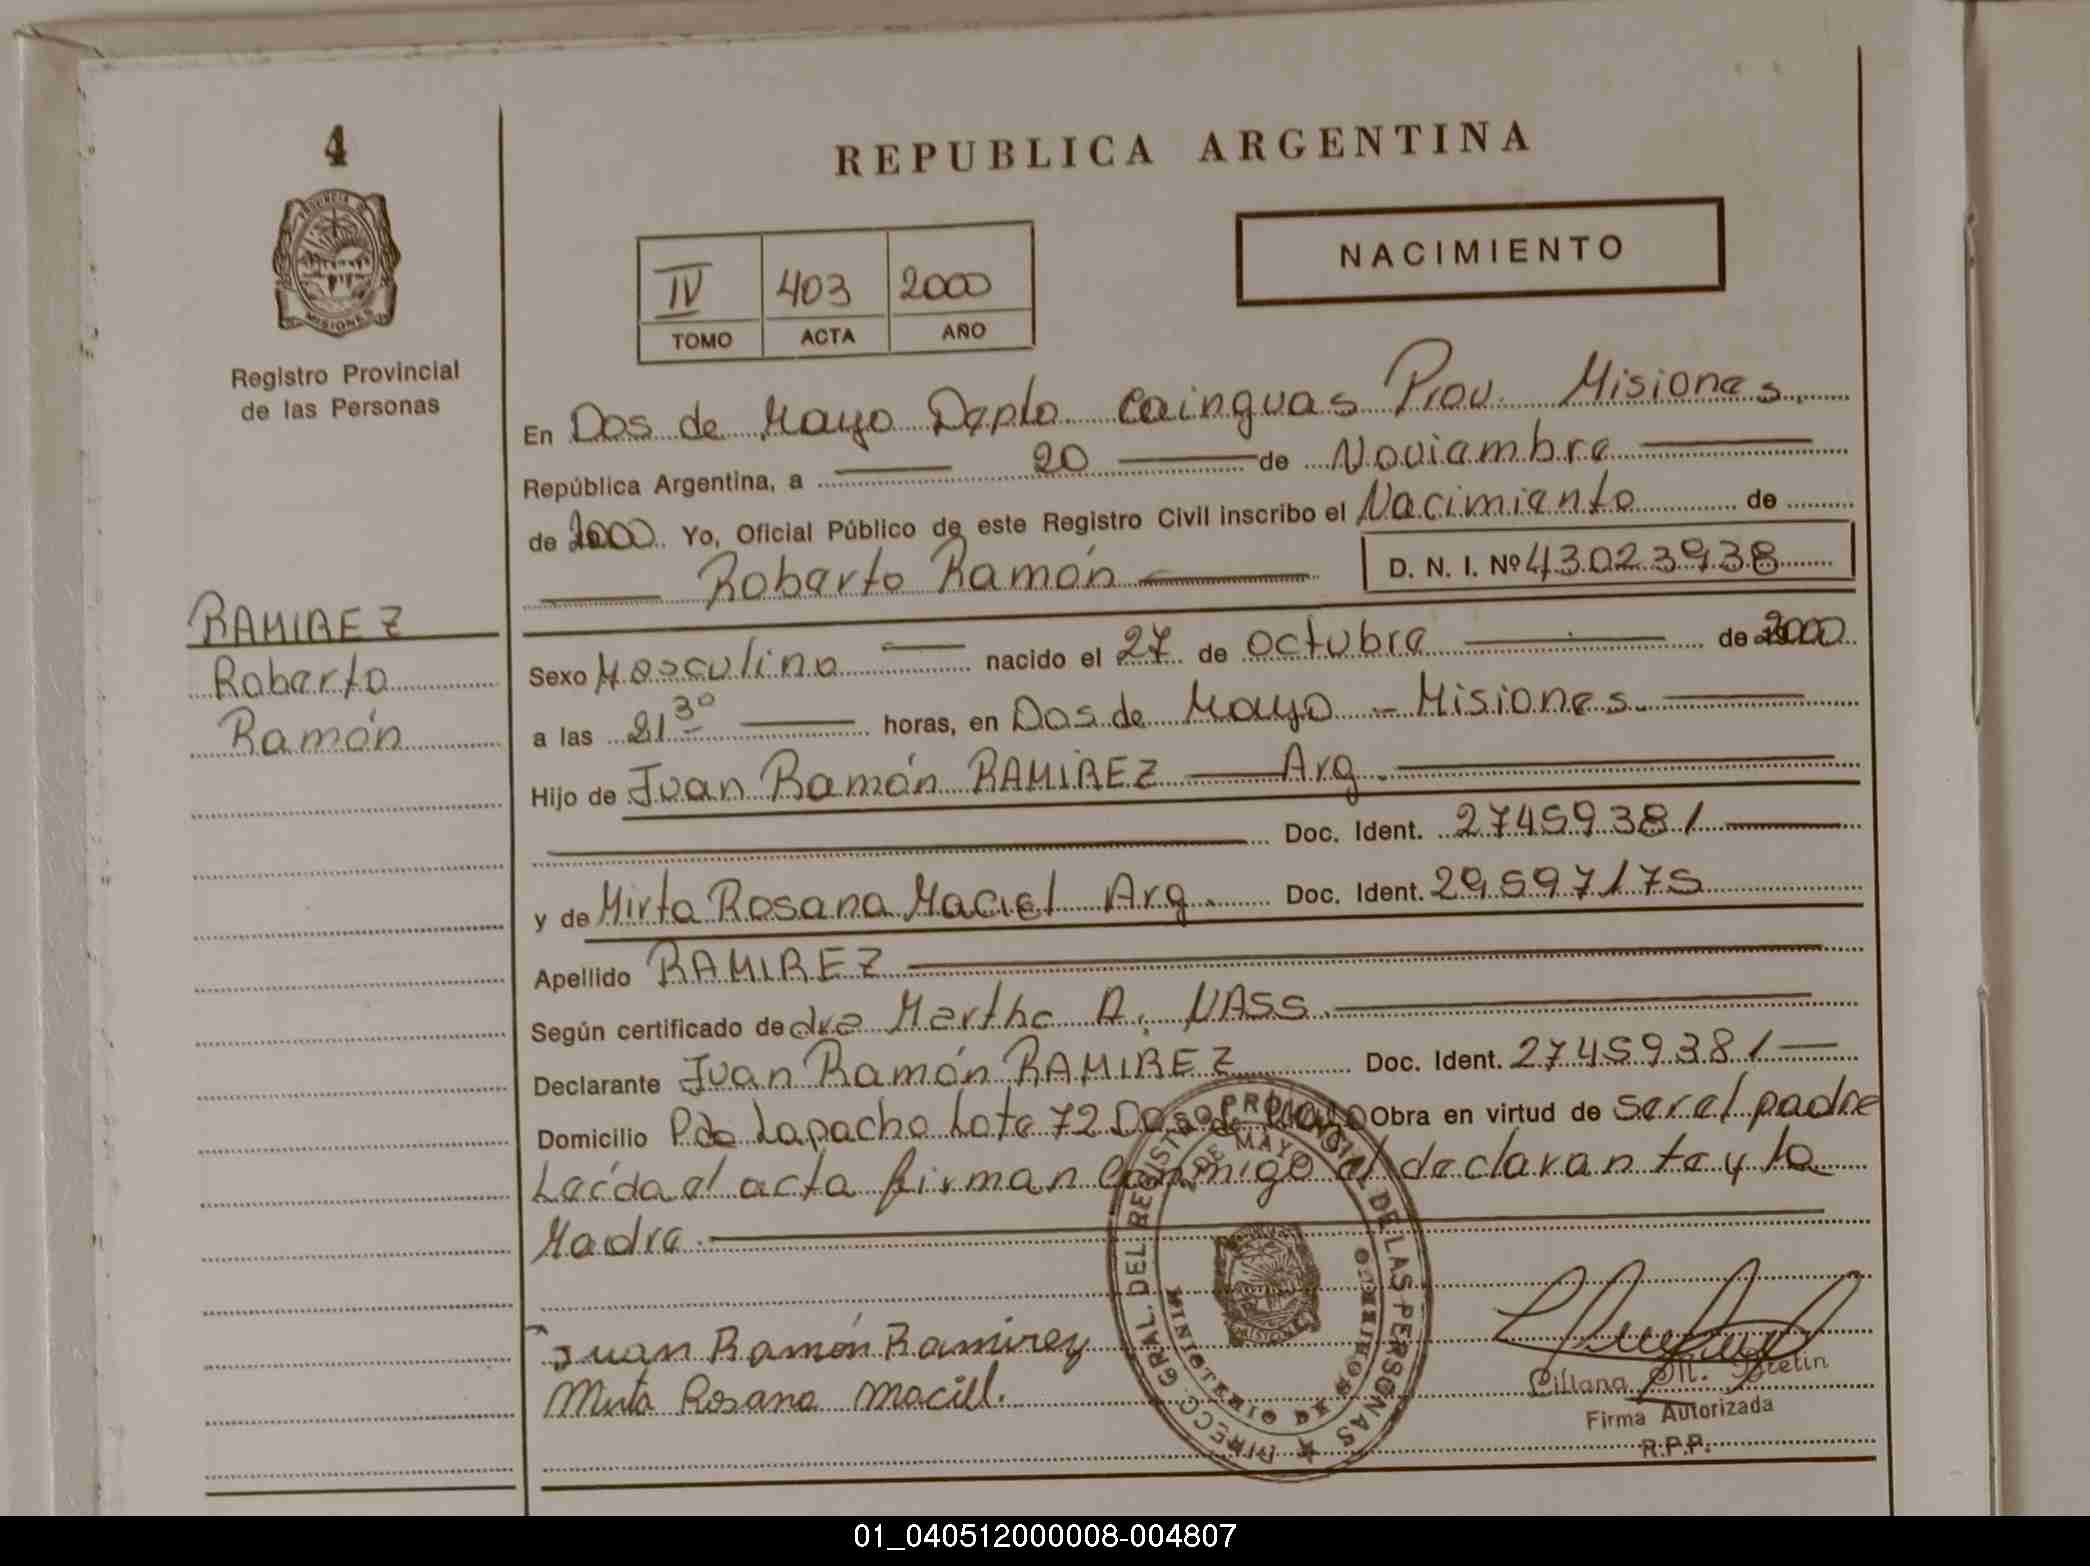 4
PROVINCIA DE
MISIONES
Registro Provincial
de las Personas
RAMIREZ
Roberto
Ramón
REPUBLICA ARGENTINA
IV 403 2000
TOMO ACTA AÑO
NACIMIENTO
En Dos de Mayo Depto Cainguas Prov. Misiones
República Argentina, a 20 de Noviembre
de 2000 Yo, Oficial Público de este Registro Civil inscribo el Nacimiento de
Roberto Ramón D. N. I. Nº 43023938
Sexo Masculino nacido el 27 de octubre de 2000
a las 21 30 horas, en Dos de Mayo - Misiones
Hijo de Juan Ramón RAMIREZ Arg.
Doc. Ident. 27459381
y de Mirta Rosana Maciel Arg. Doc. Ident. 29597175
Apellido RAMIREZ
Según certificado de dra Martha A. NASS
Declarante Juan Ramón RAMIREZ Doc. Ident. 27459381
Domicilio Pdo Lapacho Lote 72 Dos de Mayo Obra en virtud de ser el padre
Leída el acta firman conmigo el declarante y la
Madre
Juan Ramón Ramirez
Mirta Rosana Maciel.
DIRECC. GRAL. DEL REGISTRO PROVINCIAL DE LAS PERSONAS
2 DE MAYO
MINISTERIO DE GOBIERNO
MISIONES
Firma Autorizada
R.P.P.
01_040512000008-004807